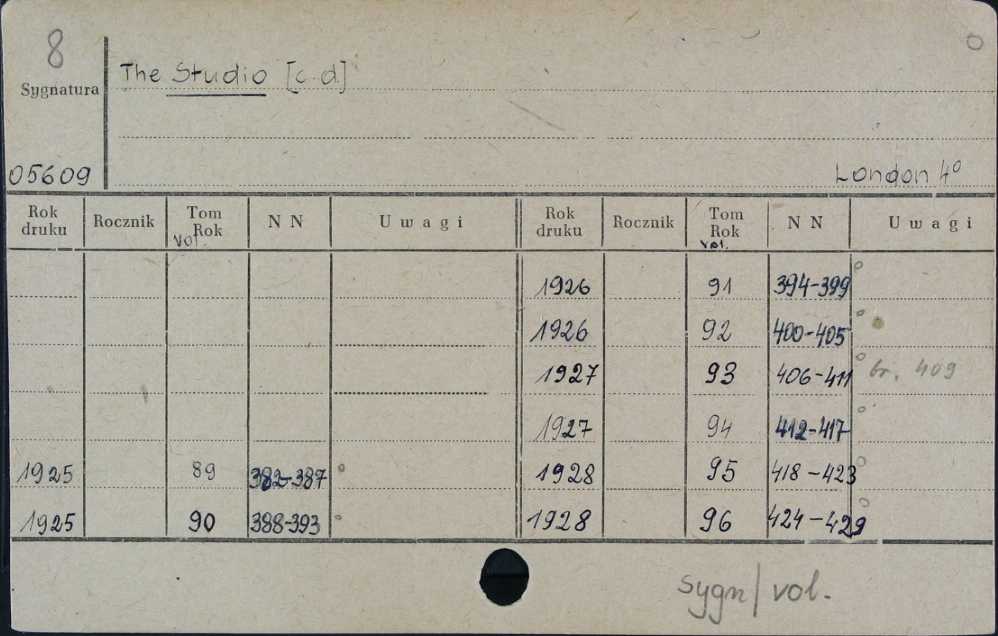 8
Sygnatura
The Studio [c.d]
05609
London 4°
Rok druku Rocznik Tom Rok vol. NN Uwagi Rok druku Rocznik Tom Rok vol. NN Uwagi
1926 91 394-399
1926 92 400-405
1927 93 406-411 br. 409
1927 94 412-417
1925 89 382-387 1928 95 418-423
1925 90 388-393 1928 96 424-429
sygn/vol.